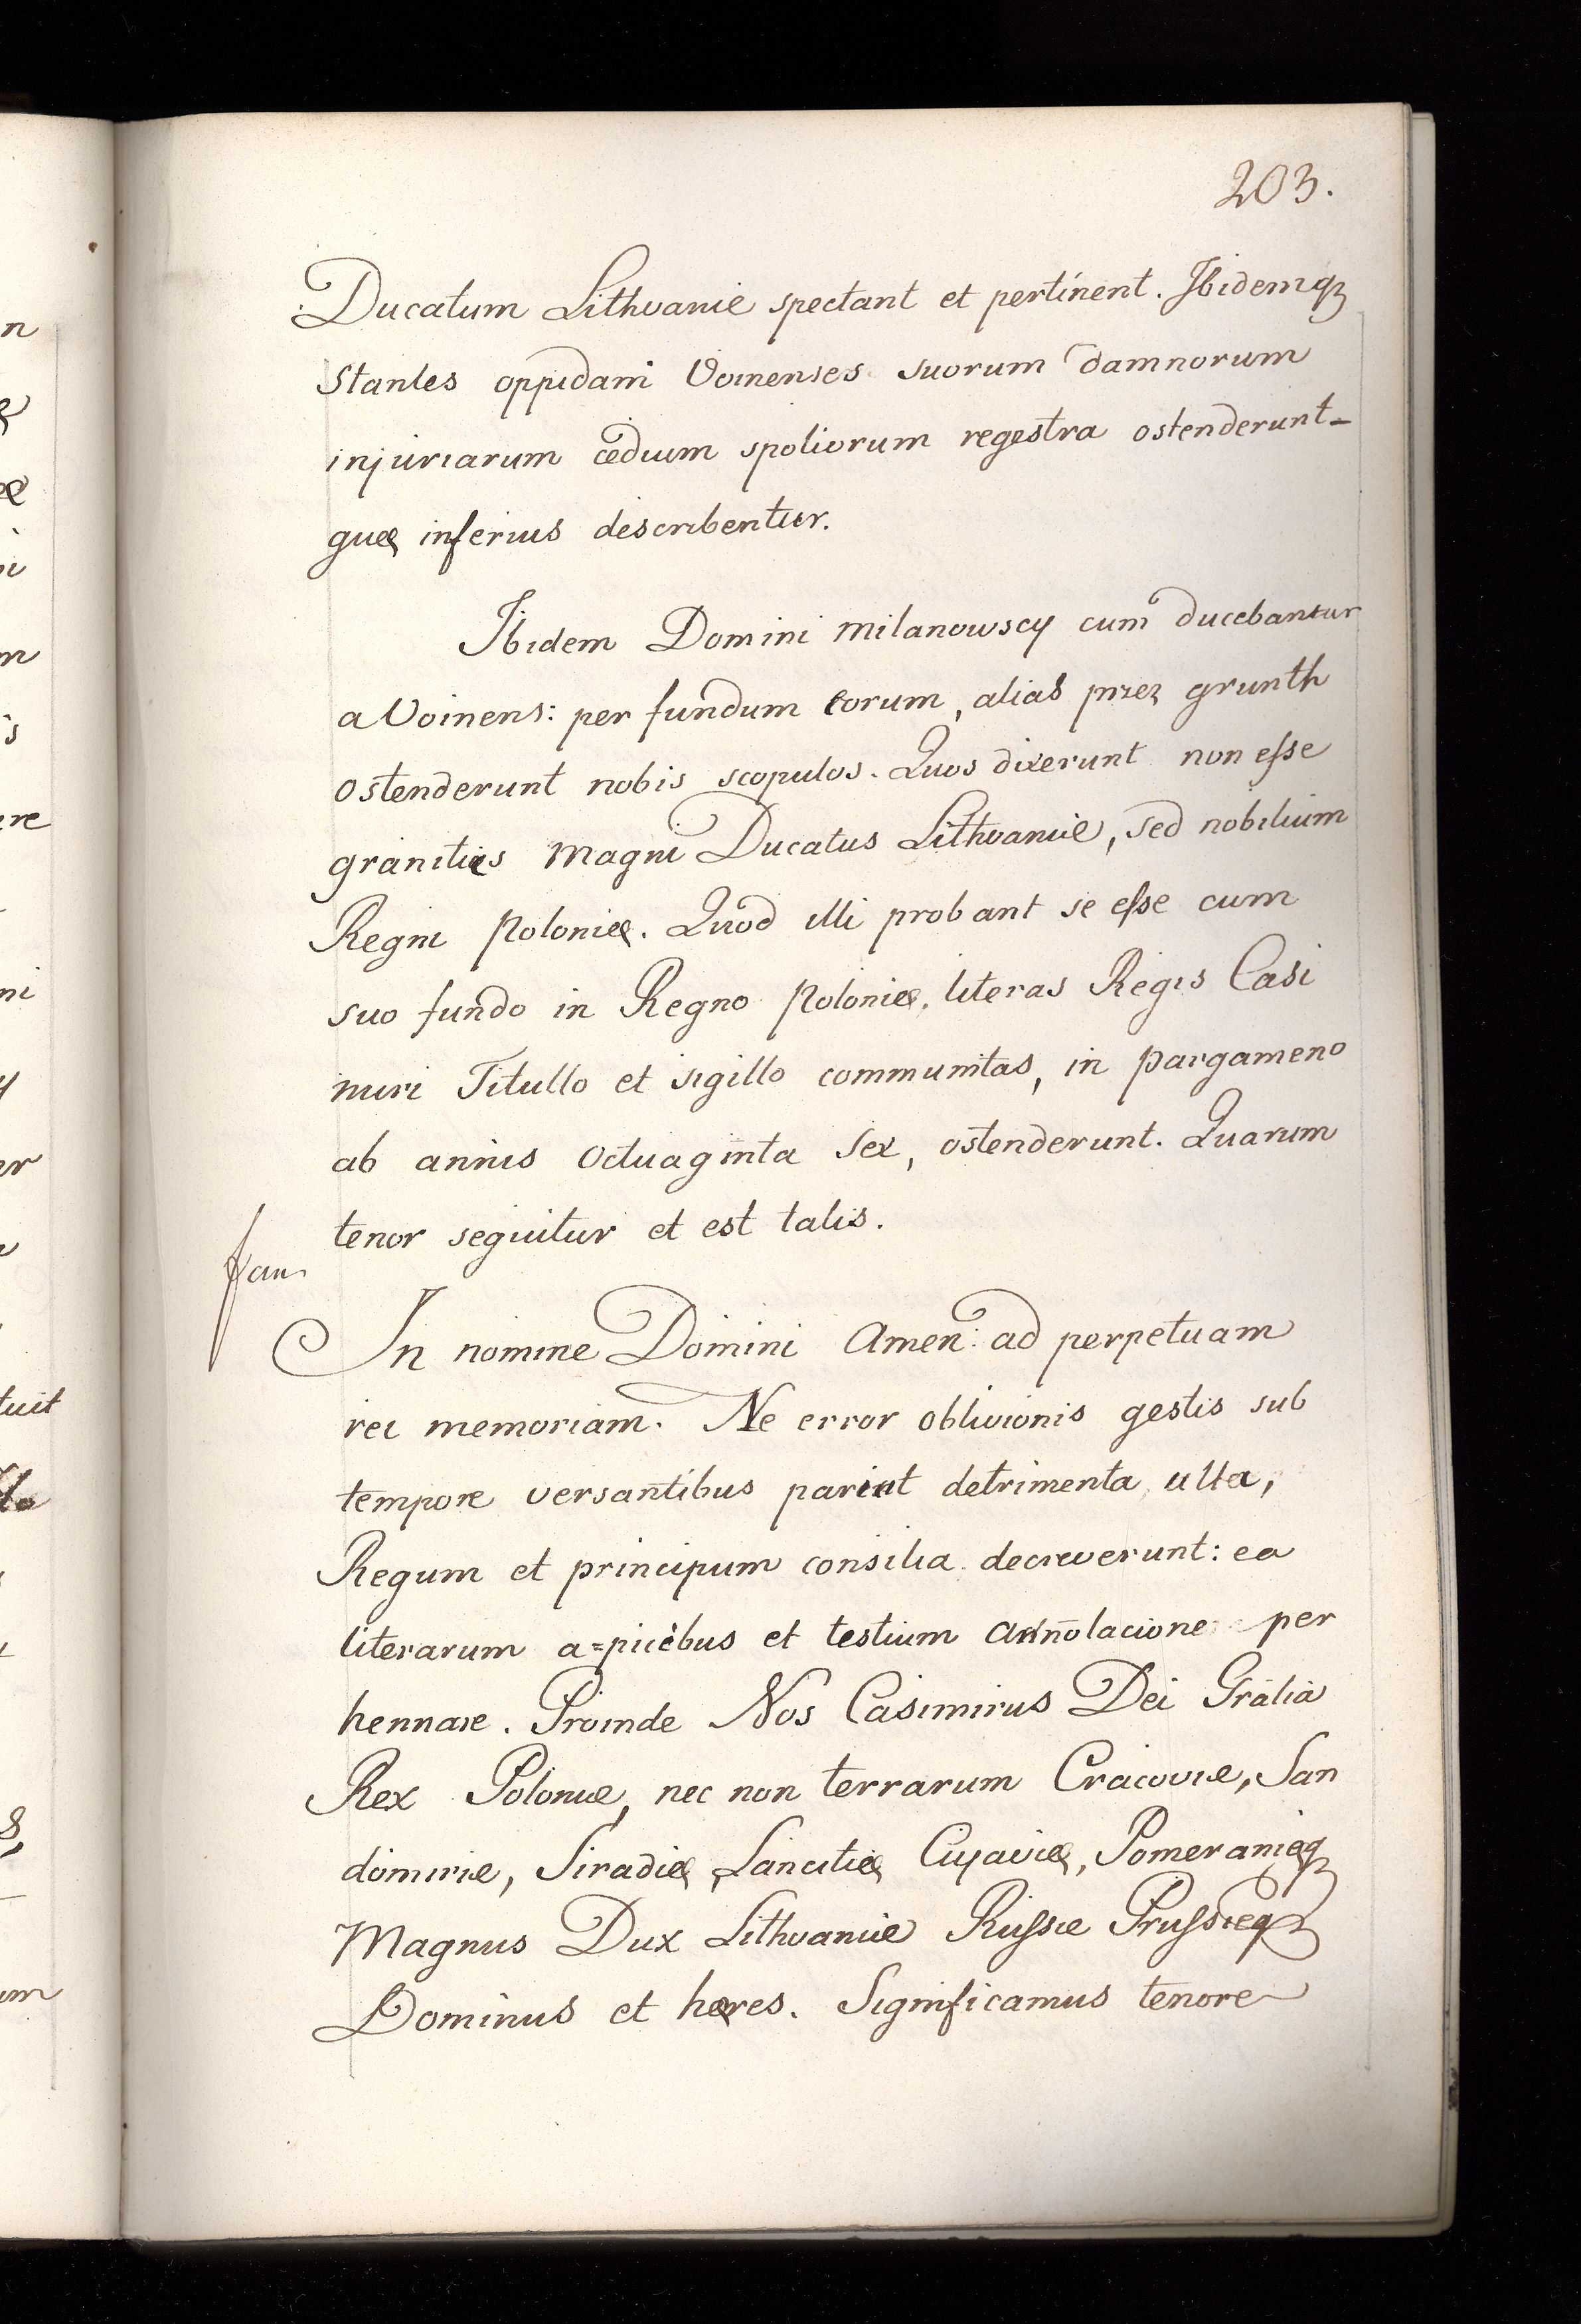 203.
Ducatum Lithvaniæ spectant et pertinent. Ibidemqz
stantes oppidani Voinenses suorum damnorum
injuriarum cædium spoliorum regestra ostenderunt
quæ inferius describentur.
Ibidem Domini Milanowscy cum ducebantur
a Voinens: per fundum eorum, alias przez grunth
ostenderunt nobis scopulos. Quos dixerunt non esse
granities Magni Ducatus Lithvaniæ, sed nobilium
Regni Poloniæ. Quod illi probant se esse cum
suo fundo in Regno Poloniæ, literas Regis Casi
miri Titullo et sigillo communitas, in pargameno
ab annis octuaginta sex, ostenderunt. Quarum
tenor sequitur et est talis.
In nomine Domini Amen: ad perpetuam
rei memoriam. Ne error oblivionis gestis sub
tempore versantibus pariat detrimenta ulla,
Regum et principum consilia decreverunt: ea
literarum a=picibus et testium annolacione per
hennare. Proinde Nos Casimirus Dei Gratia
Rex Poloniæ, nec non terrarum Cracoviæ, San
domiriæ, Siradiæ, Lancitiæ Cujaviæ, Pomeraniæqz
Magnus Dux Lithvaniæ Russiæ Prussiæqz
Dominus et hæres. Significamus tenore